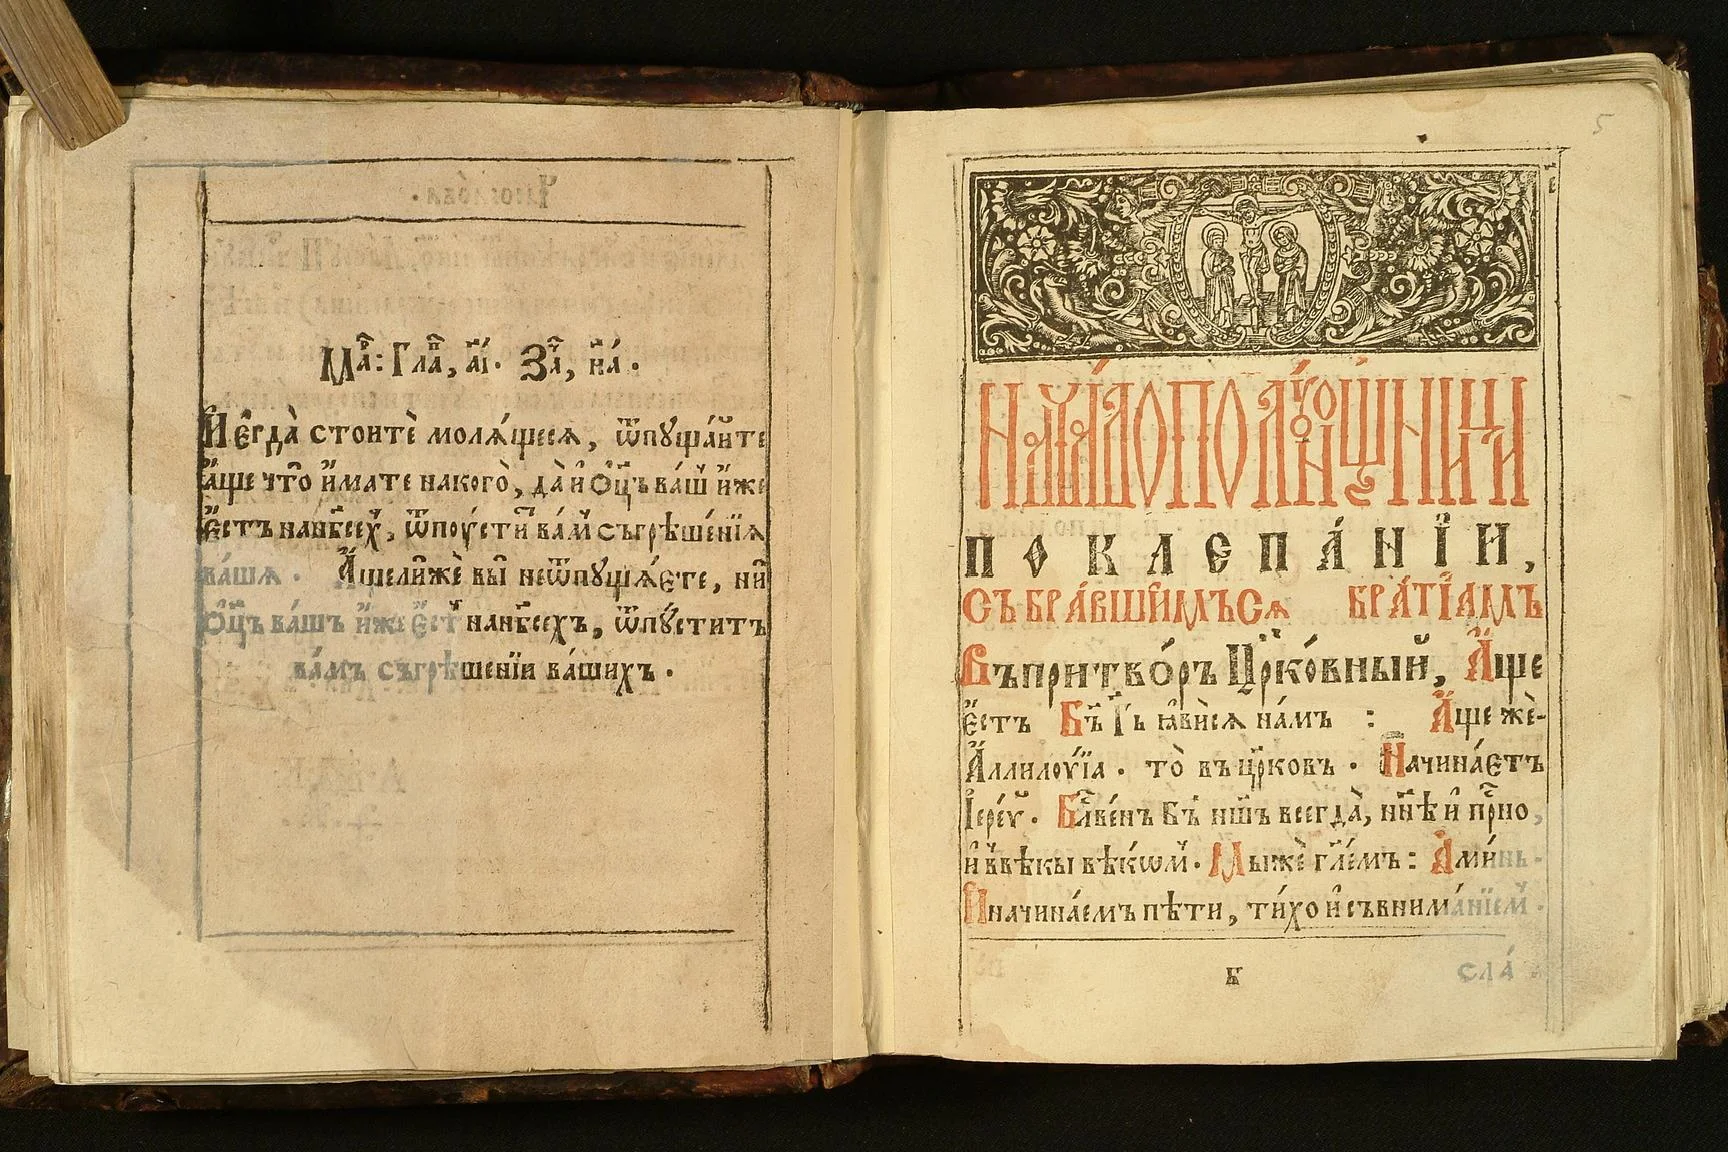 Ма҃: Гла҃, а҃і. За҃, н҃а.
И҆ є҆гда̀ стоитѐ молѧ́щеесѧ, ѿпуща́йте
а҆́ще что̀ и҆́мате накого̀, да̀ и҆ Ѻ҆ц҃ъ ва́ш и҆́же
Є҆́стъ нанб҃сех, ѿпоу́стй ва́м съгрѣше́нїѧ
ва́шѧ. А҆́щелижѐ вы̀ неѿпущѧ́єте, нй
Ѻ҆ц҃ъ ва́шъ и҆́же Є҆́ст нанб҃сехъ, ѿпу́ститъ
ва́мъ съгрѣше́нїи ва́шихъ.
5
Нача́ло полу́нощници
ПОКЛЕПА́НІИ,
СЪБРА́ВШИМЪСѧ БРА́ТІАМЪ
Въпритво́ръ Цр҃ко́вный, А҆́ще
є҆́стъ Бг҃ъ Гь҃ ꙗ҆ви́сѧ на́мъ : А҆́ще жѐ-
А҆ллилоу́їа. то̀ въ цр҃ковъ. Начина́єтъ
І҆ере́ѵ. Бл҃ве́нъ Бг҃ъ нш҃ъ всегда̀, нн҃ѣ и҆ пр҃но,
и҆ в̾вѣкы вѣ́кѡм. Мы́же гл҃е́мъ: А҆ми́нь-
И҆ начина́емъ пѣти, ти́хо и҆ съвнима́нїем.
б҃
сла́